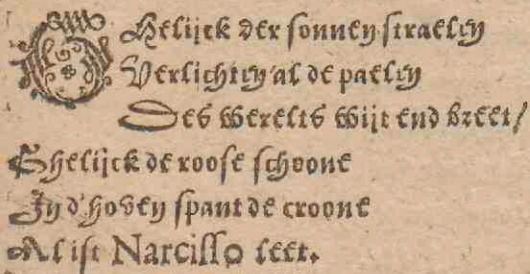 GHelijck der sonnen straelen
Verlichten al de paelen
Des werelts wijt end breet/
Ghelijck de roose schoone
In d'hoven spant de croone
Al ist Narcisso leet.